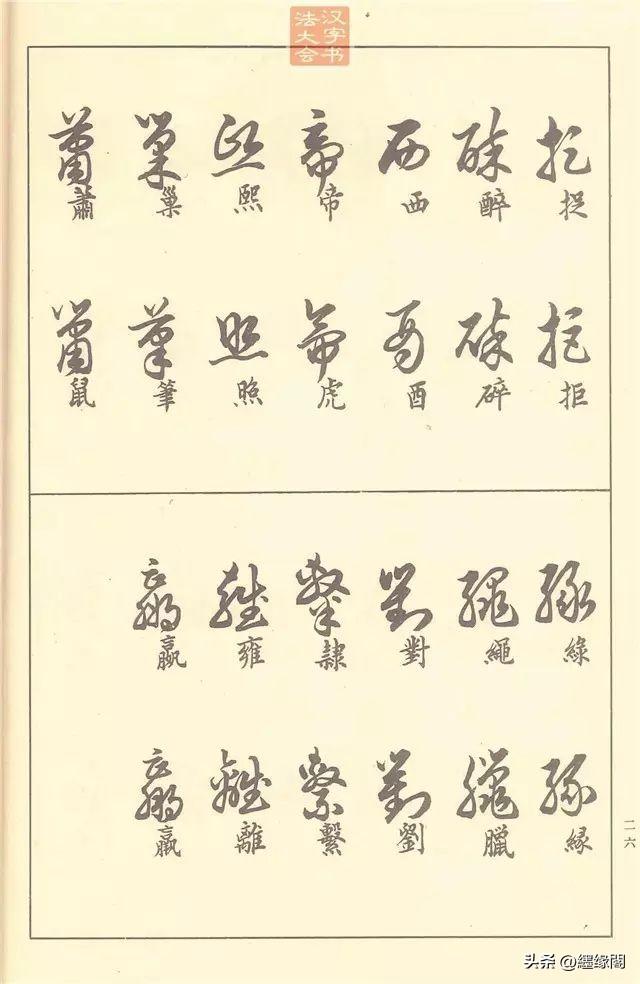 汉字书
法大会
捉 醉 西 帝 熙 巢 蕭
拒 碎 酉 虎 照 筆 鼠
綠 繩 對 隸 雍 嬴
緣 臘 劉 繫 離 羸
二六
头条 @缘閣